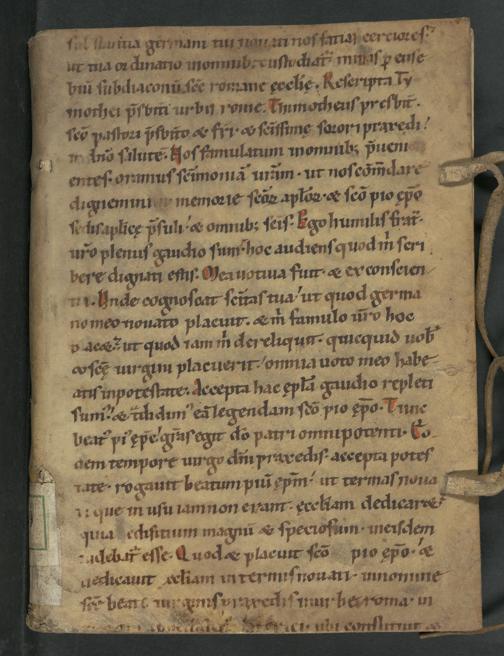 substantia germani tui novati nos faciat certiores.
ut tua ordinatio in omnib; custodiat. mittas p euse
biu subdiaconū scē romane ecclię. Rescripta Ty
mothei p̄sbiti urbis rome. Timotheus presbit̄.
scō pastori p̄sbito & fr̄i & scissime sorori praxedi
in dn̄o salutē. Nos famulatum in omnib; p̄veni
entes. oramus scimoniā vr̄am. ut nos com̄dare
dignemini memorie scōr aplor̄. & scō pio ep̄o
sedis aplicę p̄suli. & omnib; scis. Ego humilis frat̄.
ur̄o plenus gaudio sum. hoc audiens quod m̄ scri
bere dignati estis. Mea votiva fuit & ex conscien
tia. Unde cognoscat scitas tua. ut quod germa
no meo novato placuit. & m̄ famulo ur̄o hoc
placeat. ut quod iam m̄ dereliquit. quicquid vob̄
& scē virgini placuerit. omnia voto meo habe
atis in potestate. Accepta hac epl̄a gaudio repleti
sum. & tdidim eā legendam scō pio ep̄o. Tunc
beat pi ep̄c gr̄as egit dō patri omnipotenti. Eo
dem tempore virgo dn̄i praxedis. accepta potes
tate. rogavit beatum piū epm̄. ut termas nova
ti que in usu iam non erant. eccliam dedicaret
quia edificium magnū & speciosum in eisdem
videbat̄ esse. Quod & placuit scō pio ep̄o. &
dedicavit eccliam in termis novati. in nomine
scē beate virginis praxedis in urbe roma. in
ubi constituit &